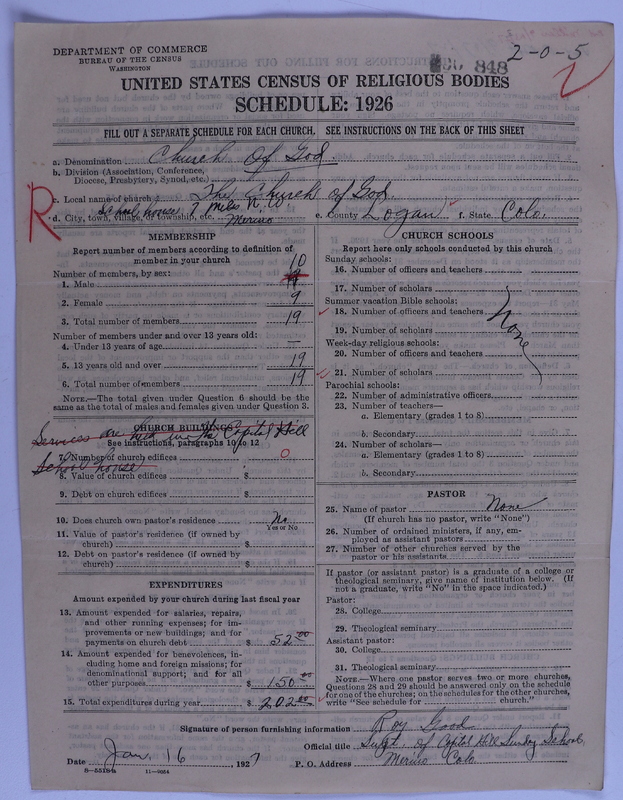 DEPARTMENT OF COMMERCE
BUREAU OF THE CENSUS
WASHINGTON
848
2-0-5
UNITED STATES CENSUS OF RELIGIOUS BODIES
SCHEDULE: 1926
FILL OUT A SEPARATE SCHEDULE FOR EACH CHURCH. SEE INSTRUCTIONS ON THE BACK OF THIS SHEET
a. Denomination Church Of God
b. Division (Association, Conference,
Diocese, Presbytery, Synod, etc.)
c. Local name of church The Church of God.
School house 7 miles N. W.
d. City, town, village, or township, etc. Merino e. County Logan f. State Colo.
R
MEMBERSHIP
Report number of members according to definition of
member in your church
Number of members, by sex: 10
1. Male
2. Female 9
3. Total number of members 19
Number of members under and over 13 years old:
4. Under 13 years of age —
5. 13 years old and over 19
6. Total number of members 19
NOTE.—The total given under Question 6 should be
same as the total of males and females given under Question 3.
CHURCH BUILDINGS
Services are held in the Capital Hill
See instructions, paragraphs 10 to 12
School house
7. Number of church edifices 0
8. Value of church edifices $
9. Debt on church edifices $
10. Does church own pastor's residence No
Yes or No
11. Value of pastor's residence (if owned by
church) $
12. Debt on pastor's residence (if owned by
church) $
EXPENDITURES
Amount expended by your church during last fiscal year
13. Amount expended for salaries, repairs,
and other running expenses; for im-
provements or new buildings; and for
payments on church debt $ 52.00
14. Amount expended for benevolences, in-
cluding home and foreign missions; for
denominational support; and for all
other purposes $ 150.00
15. Total expenditures during year $ 202.00
CHURCH SCHOOLS
Report here only schools conducted by this church
Sunday schools:
16. Number of officers and teachers
17. Number of scholars
Summer vacation Bible schools:
18. Number of officers and teachers
None
19. Number of scholars
Week-day religious schools:
20. Number of officers and teachers
21. Number of scholars
Parochial schools:
22. Number of administrative officers
23. Number of teachers—
a. Elementary (grades 1 to 8)
b. Secondary
24. Number of scholars—
a. Elementary (grades 1 to 8)
b. Secondary
PASTOR
25. Name of pastor None
(If church has no pastor, write "None")
26. Number of ordained ministers, if any, em-
ployed as assistant pastors
27. Number of other churches served by the
pastor or his assistants
If pastor (or assistant pastor) is a graduate of a college or
theological seminary, give name of institution below. (If
not a graduate, write "No" in the space indicated.)
Pastor:
28. College
29. Theological seminary
Assistant pastor:
30. College
31. Theological seminary
NOTE.—Where one pastor serves two or more churches,
Questions 28 and 29 should be answered only on the schedule
for one of the churches; on the schedules for the other churches,
write "See schedule for church."
Signature of person furnishing information Roy Good
Official title Supt. of Capital Hill Sunday School,
Date Jan. 16, 1927 P. O. Address Merino Colo.
11—9054